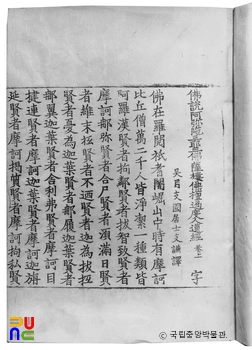 佛說阿弥陁三耶三佛薩樓佛檀過度人道經 卷上 字
吳月支國居士支謙譯
佛在羅閱祇耆闍崛山中時有摩訶
比丘僧萬二千人皆淨潔一種類皆
阿羅漢賢者拘鄰賢者拔智致賢者
摩訶那弥賢者合尸賢者須滿日賢
者維末坻賢者不迺賢者迦為拔坻
賢者憂為迦葉賢者那履迦葉賢者
那翼迦葉賢者舍利弗賢者摩訶目
揵連賢者摩訶迦葉賢者摩訶迦旃
延賢者摩訶揭質賢者摩訶拘私賢
국립중앙박물관